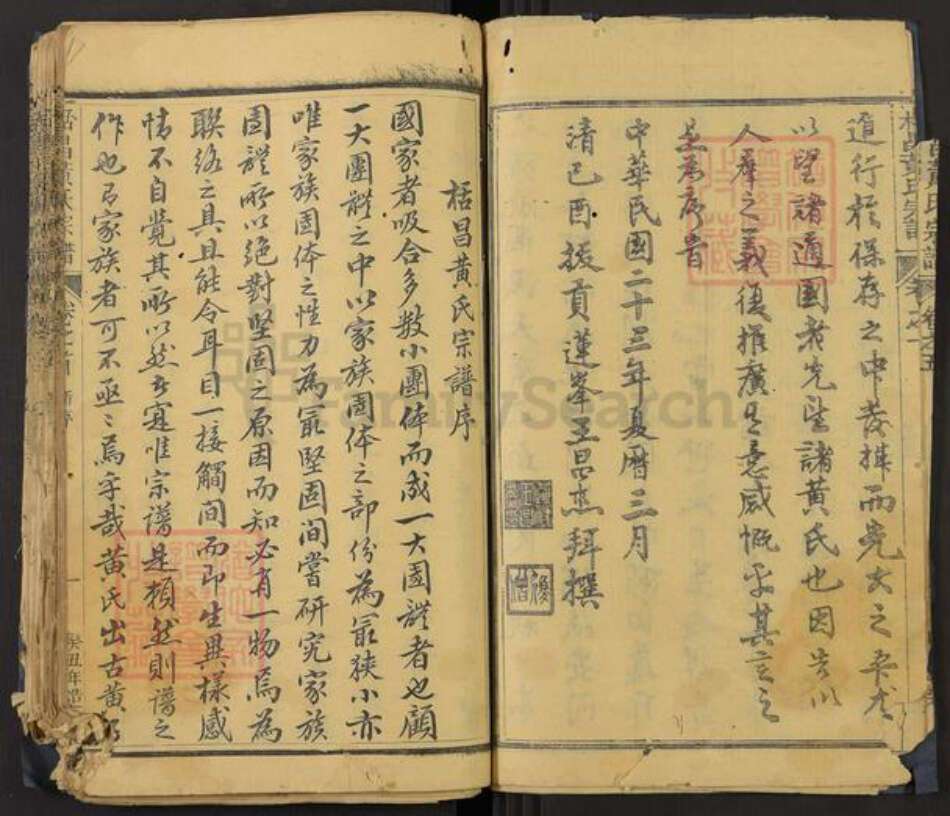 進行於保存之中發揮而光大之平尤
以望諸通國者先望諸黃氏也因告以
人羣之義復推廣是意感慨乎其言之
是為序昔
中華民國二十三年夏曆三月
清己酉拔貢蓮峯王昌杰拜撰
栝昌黃氏宗譜序
國家者吸合多數小團体而成一大國體者也顧
一大團體之中以家族團体之部份為最狹小亦
唯家族團体之性力為最堅固間嘗研究家族
團體所以絶對堅固之原因而知必有一物焉為
聯絡之具且能令耳目一接觸間而即生異樣感
情不自覺其所以然者寔唯宗譜是賴然則譜之
作也有家族者可不亟亟焉乎哉黃氏出古黃
癸丑年
FamilySearch